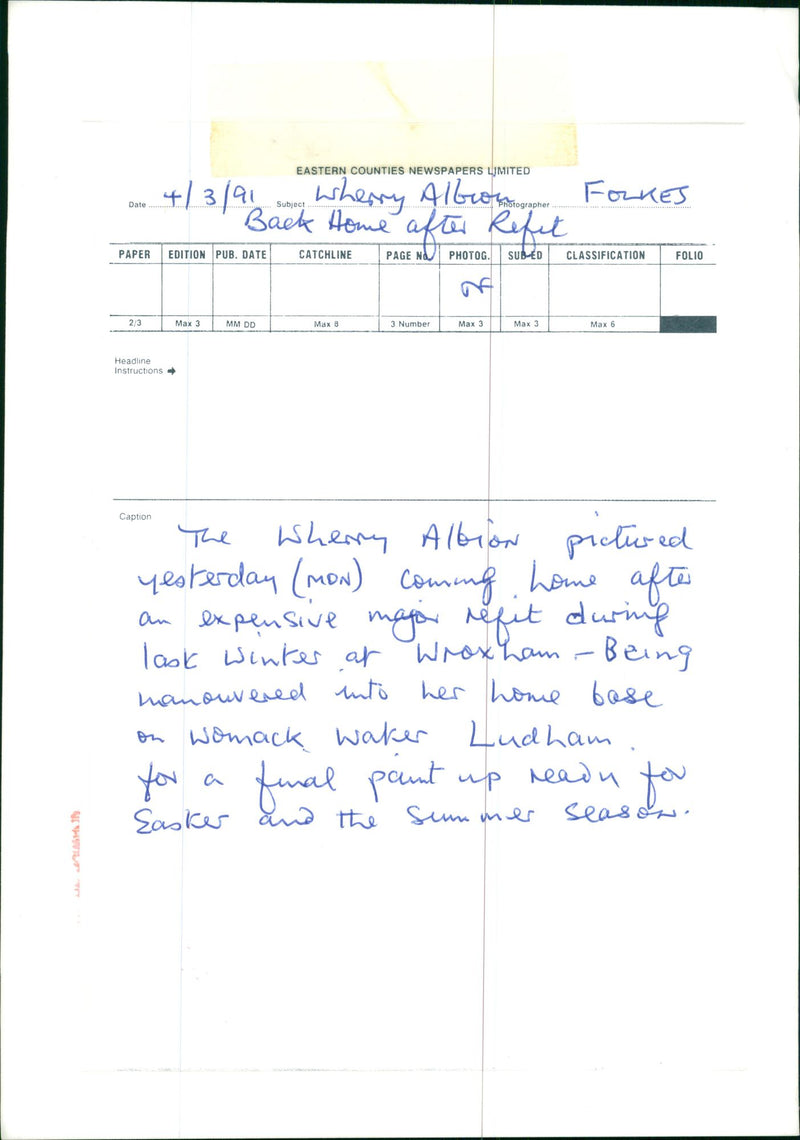 EASTERN COUNTIES NEWSPAPERS LIMITED
Date 4/3/91 Subject Wherry Albion Photographer FOLKES
Back Home after Refit
PAPER EDITION PUB. DATE CATCHLINE PAGE No. PHOTOG. SUB-ED CLASSIFICATION FOLIO
2/3 Max 3 MM DD Max 8 3 Number Max 3 Max 3 Max 6
Headline
Instructions
Caption
The Wherry Albion pictured
yesterday (MON) coming home after
an expensive major refit during
last winter at Wroxham - Being
manouvered into her home base
on Womack Water Ludham
for a final paint up ready for
Easter and the Summer season.